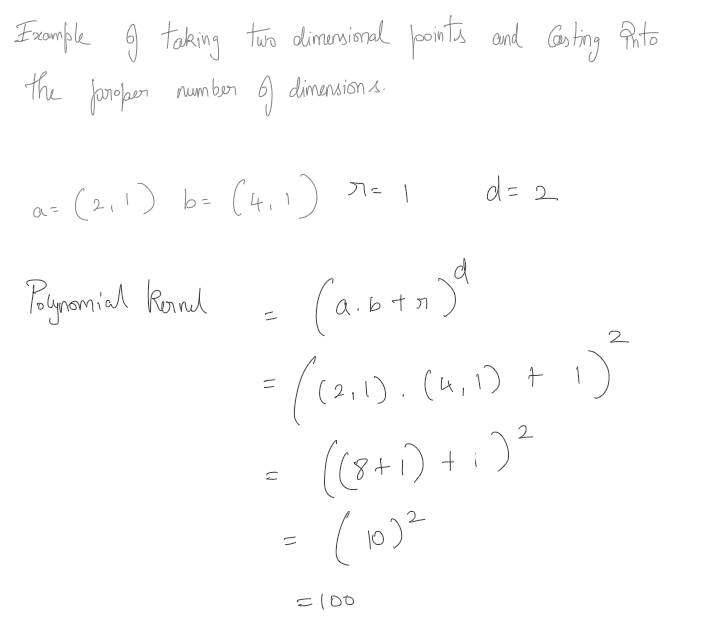 Example of taking two dimensional points and Casting into
the proper number of dimensions.
a = (2,1) b = (4,1) r = 1 d = 2
Polynomial Kernel = (a.b + r)^d
= ((2,1) . (4,1) + 1)^2
= ((8+1) + 1)^2
= (10)^2
= 100